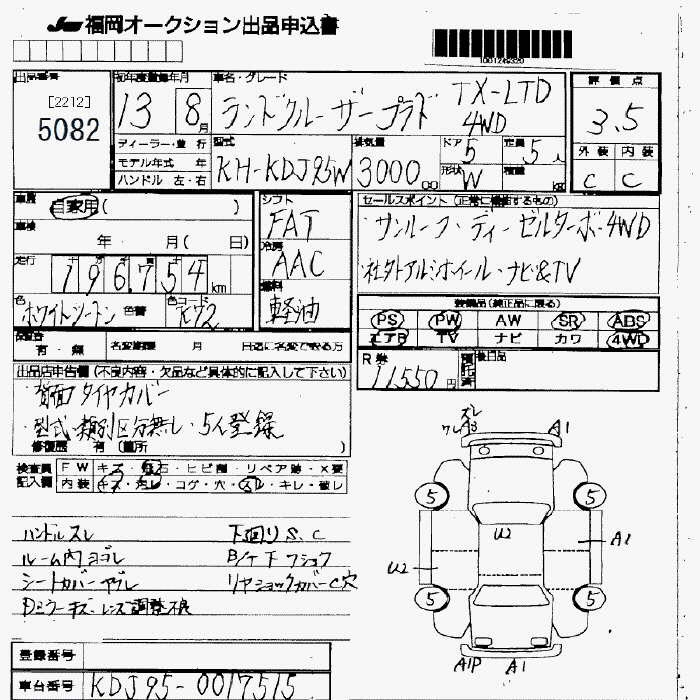 JU 福岡オークション出品申込書
1001249320
出品番号
[2212]
5082
初年度登録年月
13 8月
車名・グレード
ランドクルーザープラド TX-LTD
4WD
評価点
3.5
外装 内装
C C
ディーラー・並行
モデル年式 年
ハンドル 左・右
型式
KH-KDJ95W
排気量
3000 cc
ドア
5
定員
5人
形状
W
積載
kg
車歴
自家用( )
車検
年 月( 日)
走行
196754 km
色
ホワイトツートン 色替
色コード
K92
シフト
FAT
冷房
AAC
燃料
軽油
セールスポイント(正常に機能するもの)
・サンルーフ・ディーゼルターボ・4WD
・社外アルミホイール・ナビ&TV
装備品(純正品に限る)
PS PW AW SR ABS
エアB TV ナビ カワ 4WD
保証書
有・無
名変期限 月 日迄に名変できる方
R券
11,550円
預託済
後日品
出品店申告欄(不良内容・欠品など具体的に記入して下さい)
・背面タイヤカバー
・型式・類別区分無し・5人登録
修復歴 有(箇所 )
検査員記入欄
FW キズ・飛石・ヒビ割・リペア跡・×要
内装 キズ・汚レ・コゲ・穴・スレ・キレ・破レ
ハンドルスレ
下廻りS、C
ルーム内ヨゴレ
シートカバーヤブレ
リヤショックカバーC穴
Dミラーキズ・レンズ調整不良
ズレ
ワレA3
A1
5
5
U2
A1
U2
5
5
A1P
A1
登録番号
車台番号
KDJ95-0017515